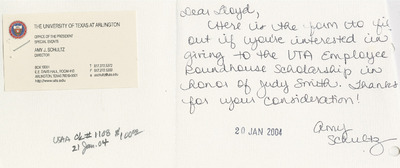 THE UNIVERSITY OF TEXAS AT ARLINGTON
OFFICE OF THE PRESIDENT
SPECIAL EVENTS
AMY J. SCHULTZ
DIRECTOR
BOX 19101
ARLINGTON, TEXAS
http://www.uta.edu
USAA ck# 1108 $100.00
21 Jan. 04
Dear Lloyd,
Here is the form to fill
out if you're interested in
giving to the UTA Employee
Roundhouse Scholarship in
honor of Judy Smith. Thanks
for your consideration!
20 JAN 2004
Amy
Schultz